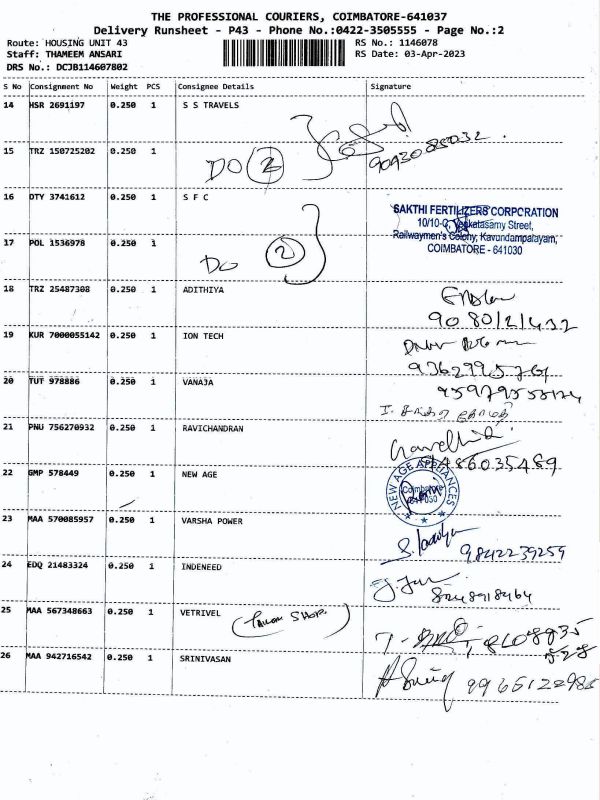 THE PROFESSIONAL COURIERS, COIMBATORE-641037
Delivery Runsheet - P43 - Phone No.:0422-3505555 - Page No.:2
Route: HOUSING UNIT 43 RS No.: 1146078
Staff: THAMEEM ANSARI RS Date: 03-Apr-2023
DRS No.: DCJB114607802
S No Consignment No Weight PCS Consignee Details Signature
14 HSR 2691197 0.250 1 S S TRAVELS
15 TRZ 150725202 0.250 1 DO 2 9093085032.
16 DTY 3741612 0.250 1 S F C
SAKTHI FERTILIZERS CORPORATION
10/10-C, Venkatasamy Street,
Railwaymen's Colony, Kavundampalayam,
COIMBATORE - 641030
17 POL 1536978 0.250 1 DO 2
18 TRZ 25487308 0.250 1 ADITHIYA
9080121432
19 KUR 7000055142 0.250 1 ION TECH
20 TUT 978886 0.250 1 VANAJA
21 PNU 756270932 0.250 1 RAVICHANDRAN
9486035489
22 GMP 578449 0.250 1 NEW AGE
NEW AGE APPLIANCES
Coimbatore
23 MAA 570085957 0.250 1 VARSHA POWER
9842239259
24 EDQ 21483324 0.250 1 INDENEED
25 MAA 567348663 0.250 1 VETRIVEL SHOP
26 MAA 942716542 0.250 1 SRINIVASAN